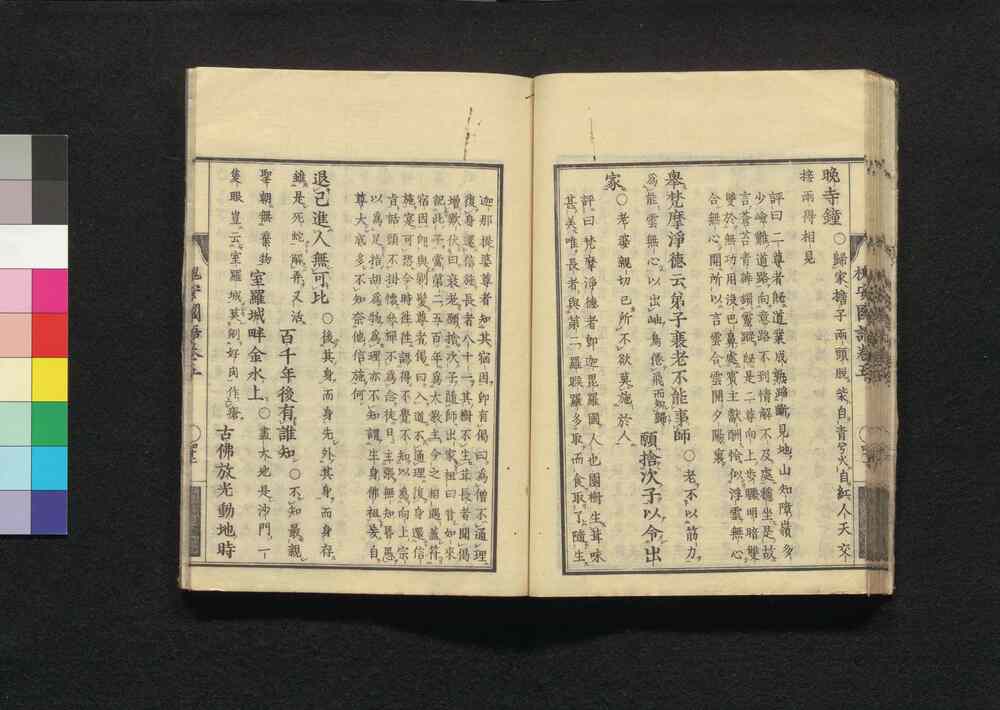 晩寺鐘 ○歸家擔子兩頭脱柴自青兮火自紅人天交
接兩得相見
評曰二尊者既道業成熟蹄斷見地山知障嶺多
少嶮難道路向意路不到情解不及處穩坐是故
言蒼苔青蘚鎖靈蹤便是二尊向上步驟明暗雙
雙於無功用沒巴鼻處賓主獻酬恰似浮雲無心
合無心開所以言雲合雲開夕陽裏
舉梵摩淨德云弟子衰老不能事師 ○老不以筋力
爲能雲無心以出岫鳥倦飛而知歸 願捨次子以令出
家 ○老婆親切已所不欲莫施於人
評曰梵摩淨德者即迦毘羅國人也園樹生茸味
甚美唯長者與第二羅睺羅多取而食取了隨生
迦那提婆尊者知其宿因即有偈曰爲僧不通理
復身還信施長者八十一其樹不生茸長者聞偈
增歎伏曰衰老願捨次子隨師出家祖曰昔如來
記此子當第二五百年爲大教主今之相遇蓋符
宿因即與剃髮尊者偈曰入道不通理復身還信
施寔可恐今時往往認得不覺不知以爲向上宗
旨話頭不掛懷參禪不爲念徒日主張無知昏愚
以爲足指胡爲物爲理亦不知謂生身佛祖妄自
尊大底多不知奈他信施何
退己進人無可比 ○後其身而身先外其身而身存
雖是死蛇解弄又活 百千年後有誰知 ○不知最親
聖朝無棄物 室羅城畔金水上 ○盡大地是沙門一
隻眼豈云室羅城莫剜好肉作瘡 古佛放光動地時
槐安國語卷五